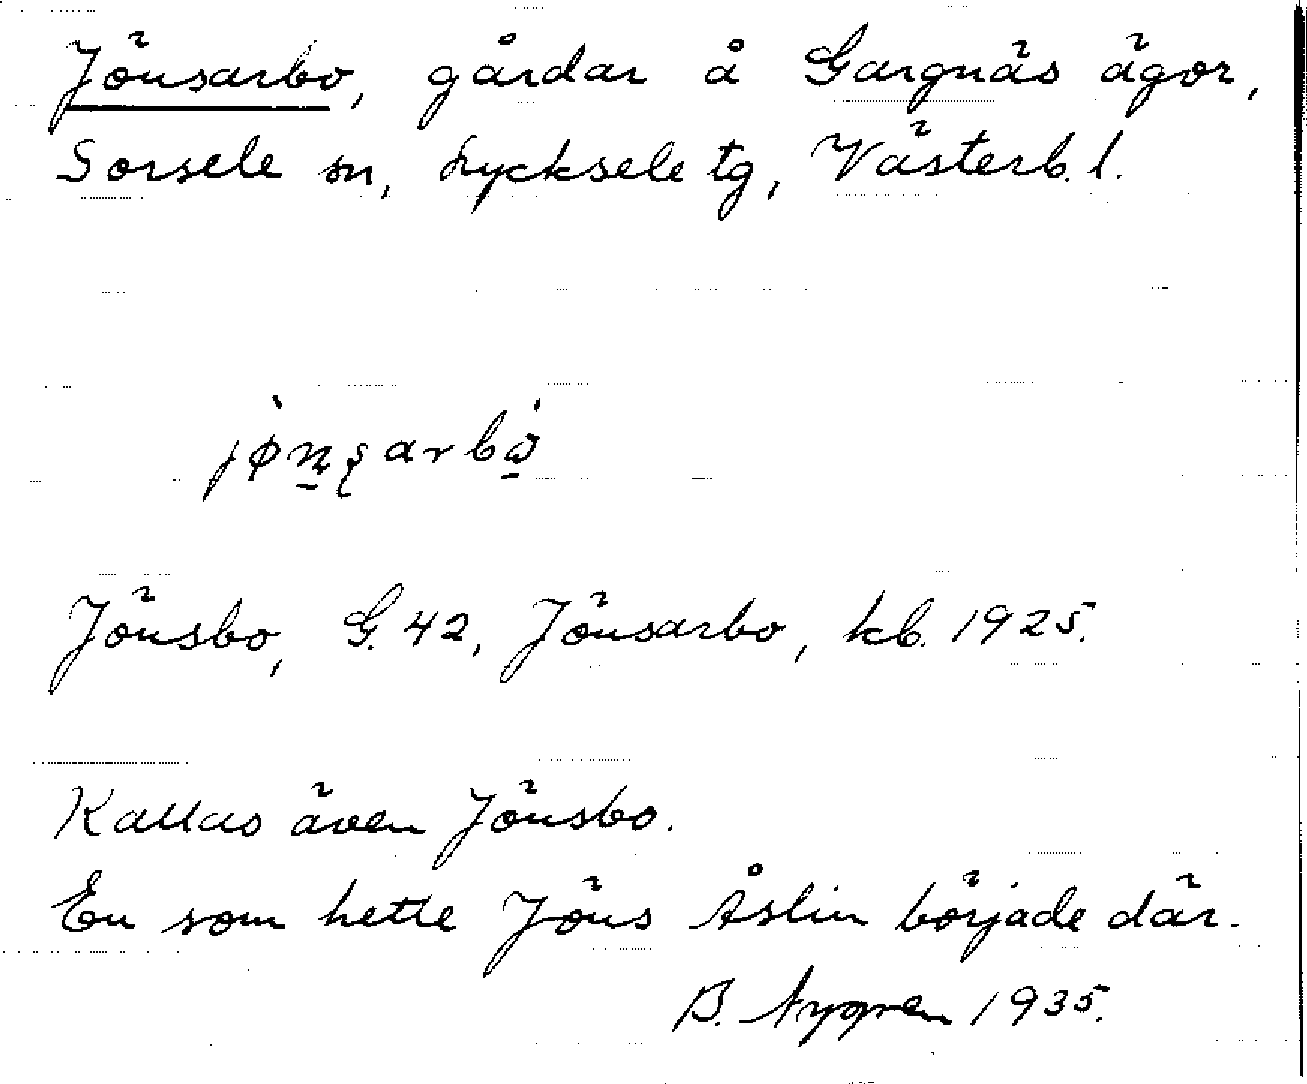 Jönsarbo, gårdar å Gargnäs ägor,
Sorsele sn, Lycksele tg, Västerb. l.
Jönsbo, G. 42, Jönsarbo, kb. 1925.
Kallas även Jönsbo.
En som hette Jöns Åslin började där.
B. Nygren 1935.